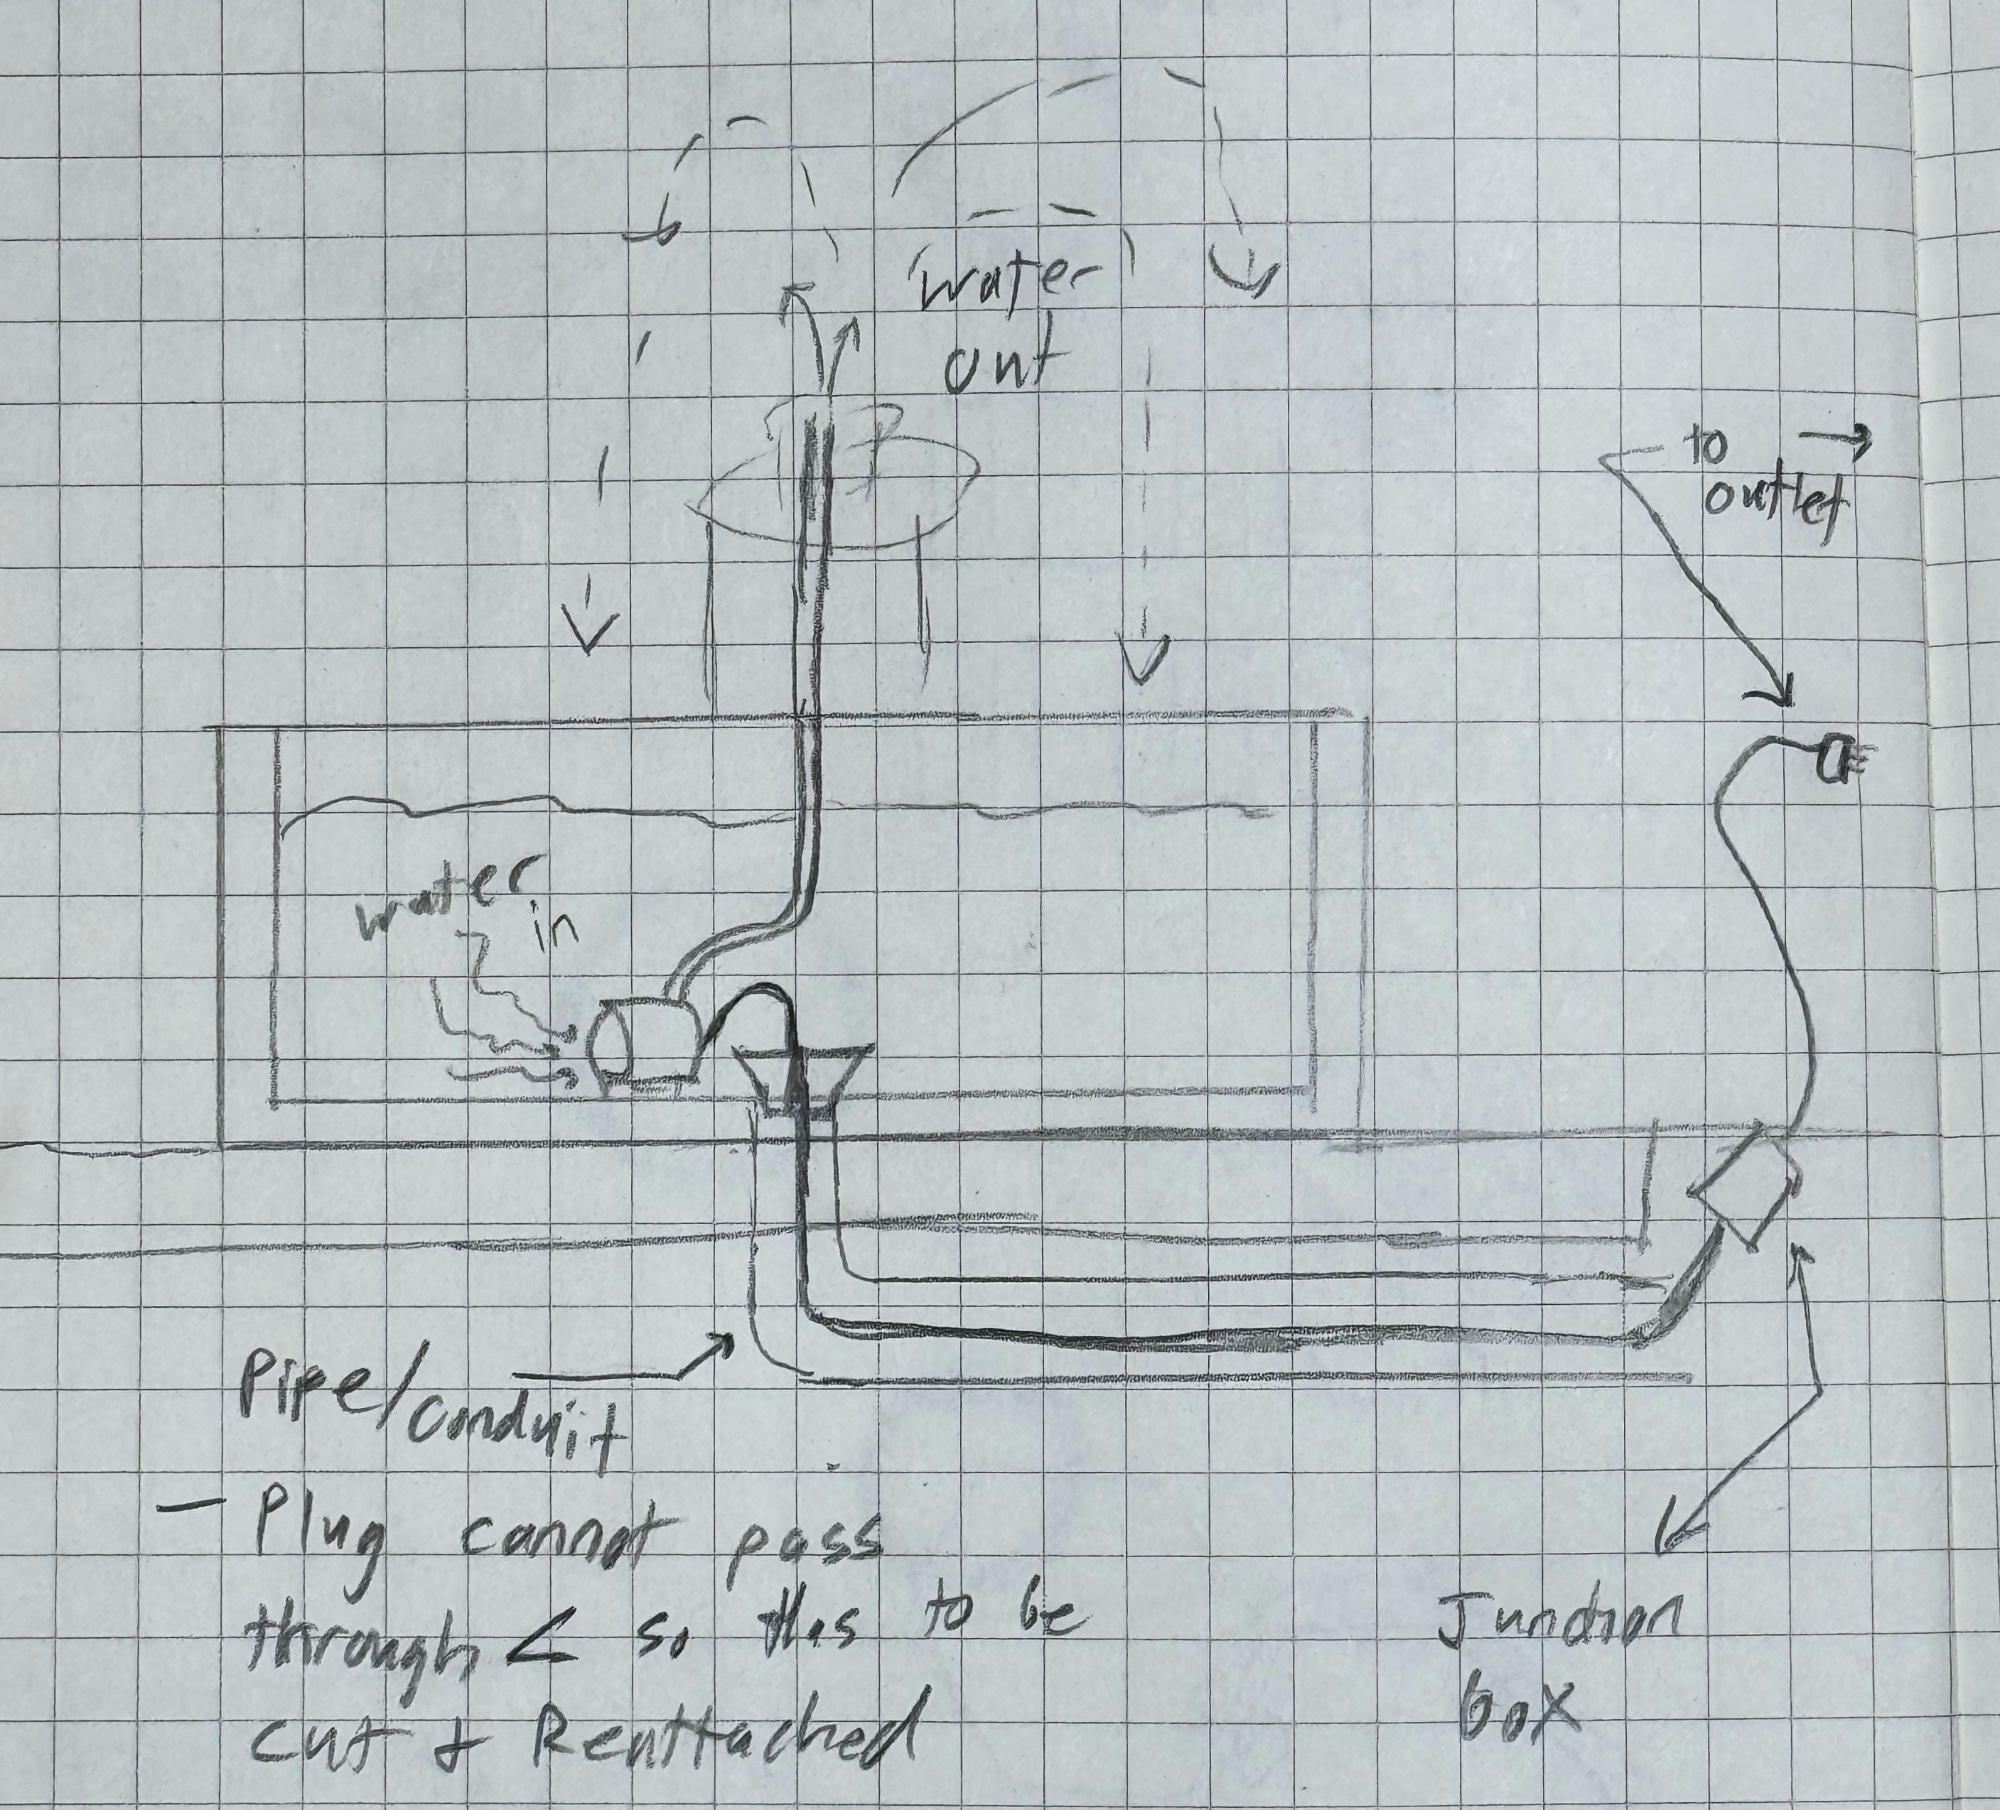 water
out
to
outlet
water
in
Pipe/
conduit
- Plug cannot pass
through < so this to be
cut & Reattached
Junction
box